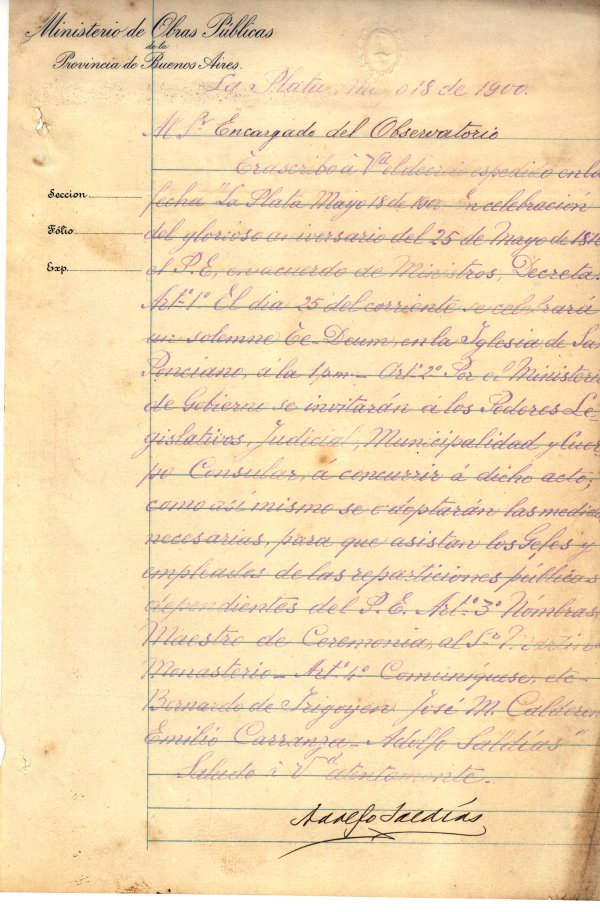 Ministerio de Obras Públicas
de la
Provincia de Buenos Aires.
La Plata, Mayo 18 de 1900.
Al Sr. Encargado del Observatorio
Trascribo á Vd. el decreto espedido en la
Seccion
fecha "La Plata Mayo 18 de 1900 En celebración
Fólio
del glorioso aniversario del 25 de Mayo de 1810
Exp.
el P.E, en acuerdo de Ministros, Decreta.
Art.º 1º El dia 25 del corriente se celebrará
un solemne Te-Deum, en la Iglesia de San
Ponciano, á la 1 p.m.- Art.º 2º Por el Ministerio
de Gobierno se invitarán á los Poderes Le-
gislativos, Judicial, Municipalidad y Cuer-
po Consular, á concurrir á dicho acto;
como asi mismo se adoptarán las medidas
necesarias, para que asistan los Gefes y
empleados de las reparticiones públicas
dependientes del P.E. Art.º 3º Nómbrase
Maestro de Ceremonia, al Sr.
Monasterio- Art.º 4º Comuníquese, etc-
Bernardo de Irigoyen José M. Calderon
Emilio Carranza- Adolfo Saldías"
Saludo á Vd. atentamente.
Adolfo Saldías